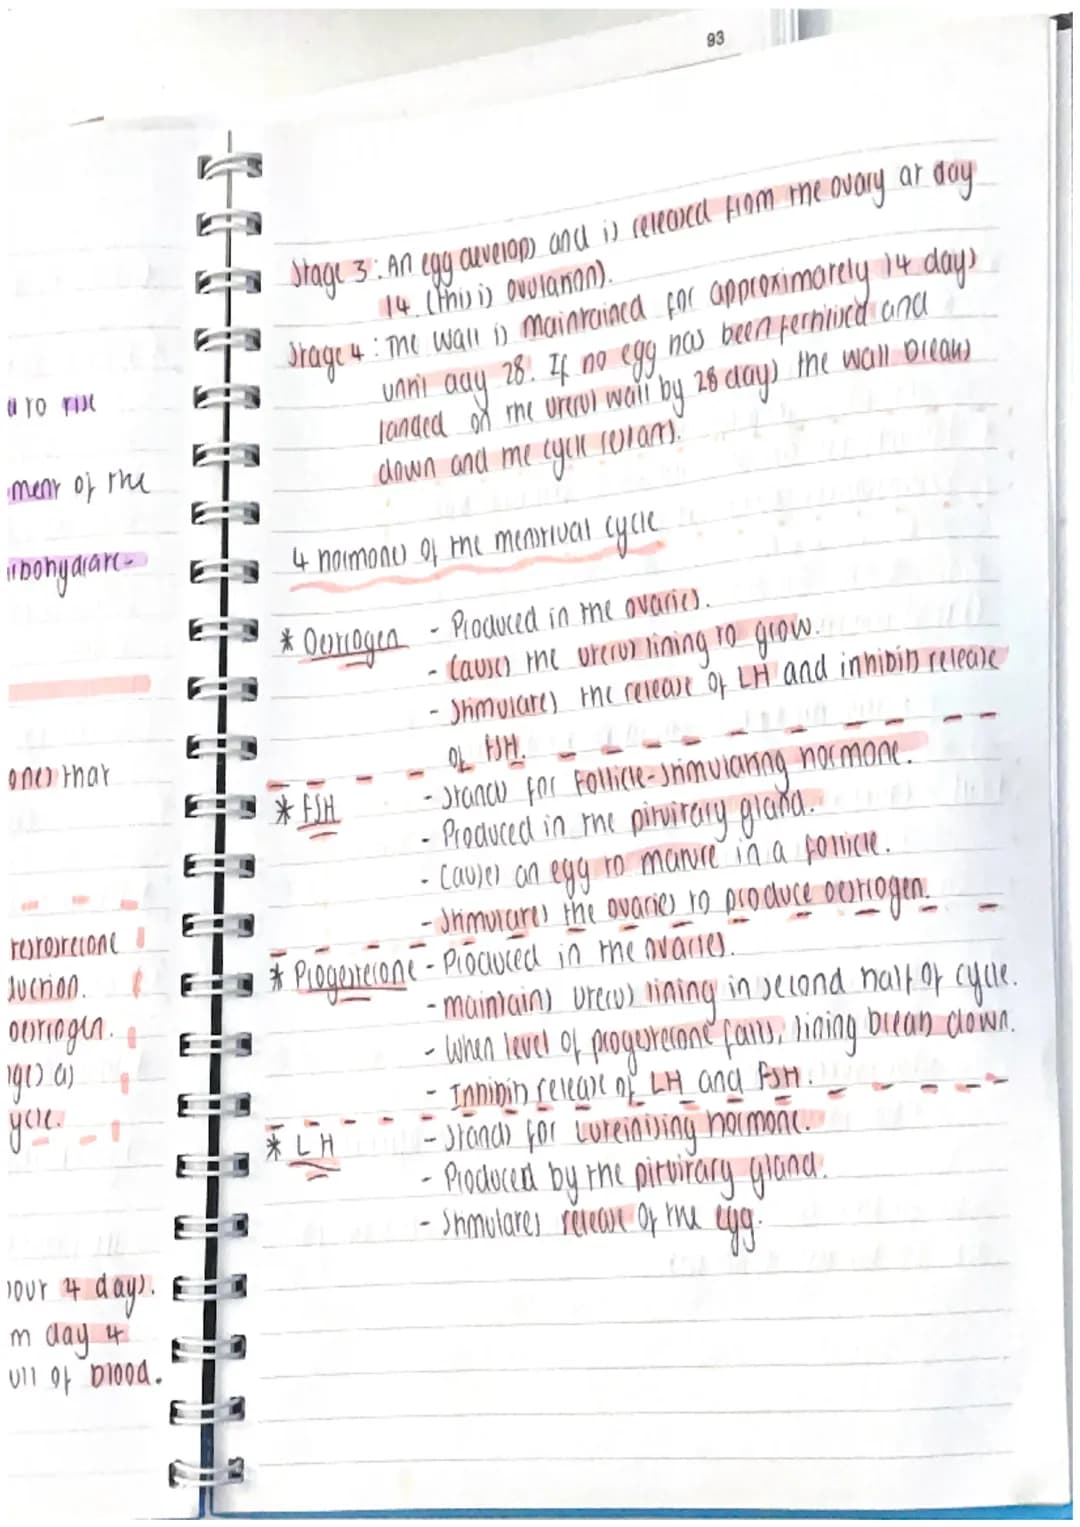 93
Stage 3: An egg develops and is released from the ovary at day
14. (this is ovulation).
Stage 4: The wall is maintained for approximately 14 days
until day 28. If no egg has been fertilised and
landed on the uterus wall by 28 days the wall breaks
down and the cycle restarts.
4 hormones of the menstrual cycle
* Oestrogen - Produced in the ovaries.
- Causes the uterus lining to grow.
- Stimulates the release of LH and inhibits release
of FSH.
* FSH - Stands for Follicle-Stimulating hormone.
- Produced in the pituitary gland.
- Causes an egg to mature in a follicle.
- Stimulates the ovaries to produce oestrogen.
* Progesterone - Produced in the ovaries.
- maintains uterus lining in second half of cycle.
- When level of progesterone falls, lining breaks down.
- Inhibits release of LH and FSH.
* LH - Stands for Luteinising hormone.
- Produced by the pituitary gland.
- Stimulates release of the egg.
to rise
ment of the
rbohydrate-
ones that
testosterone
duction.
oestrogen.
ges as
ycle.
bout 4 days.
m day 4
ull of blood.